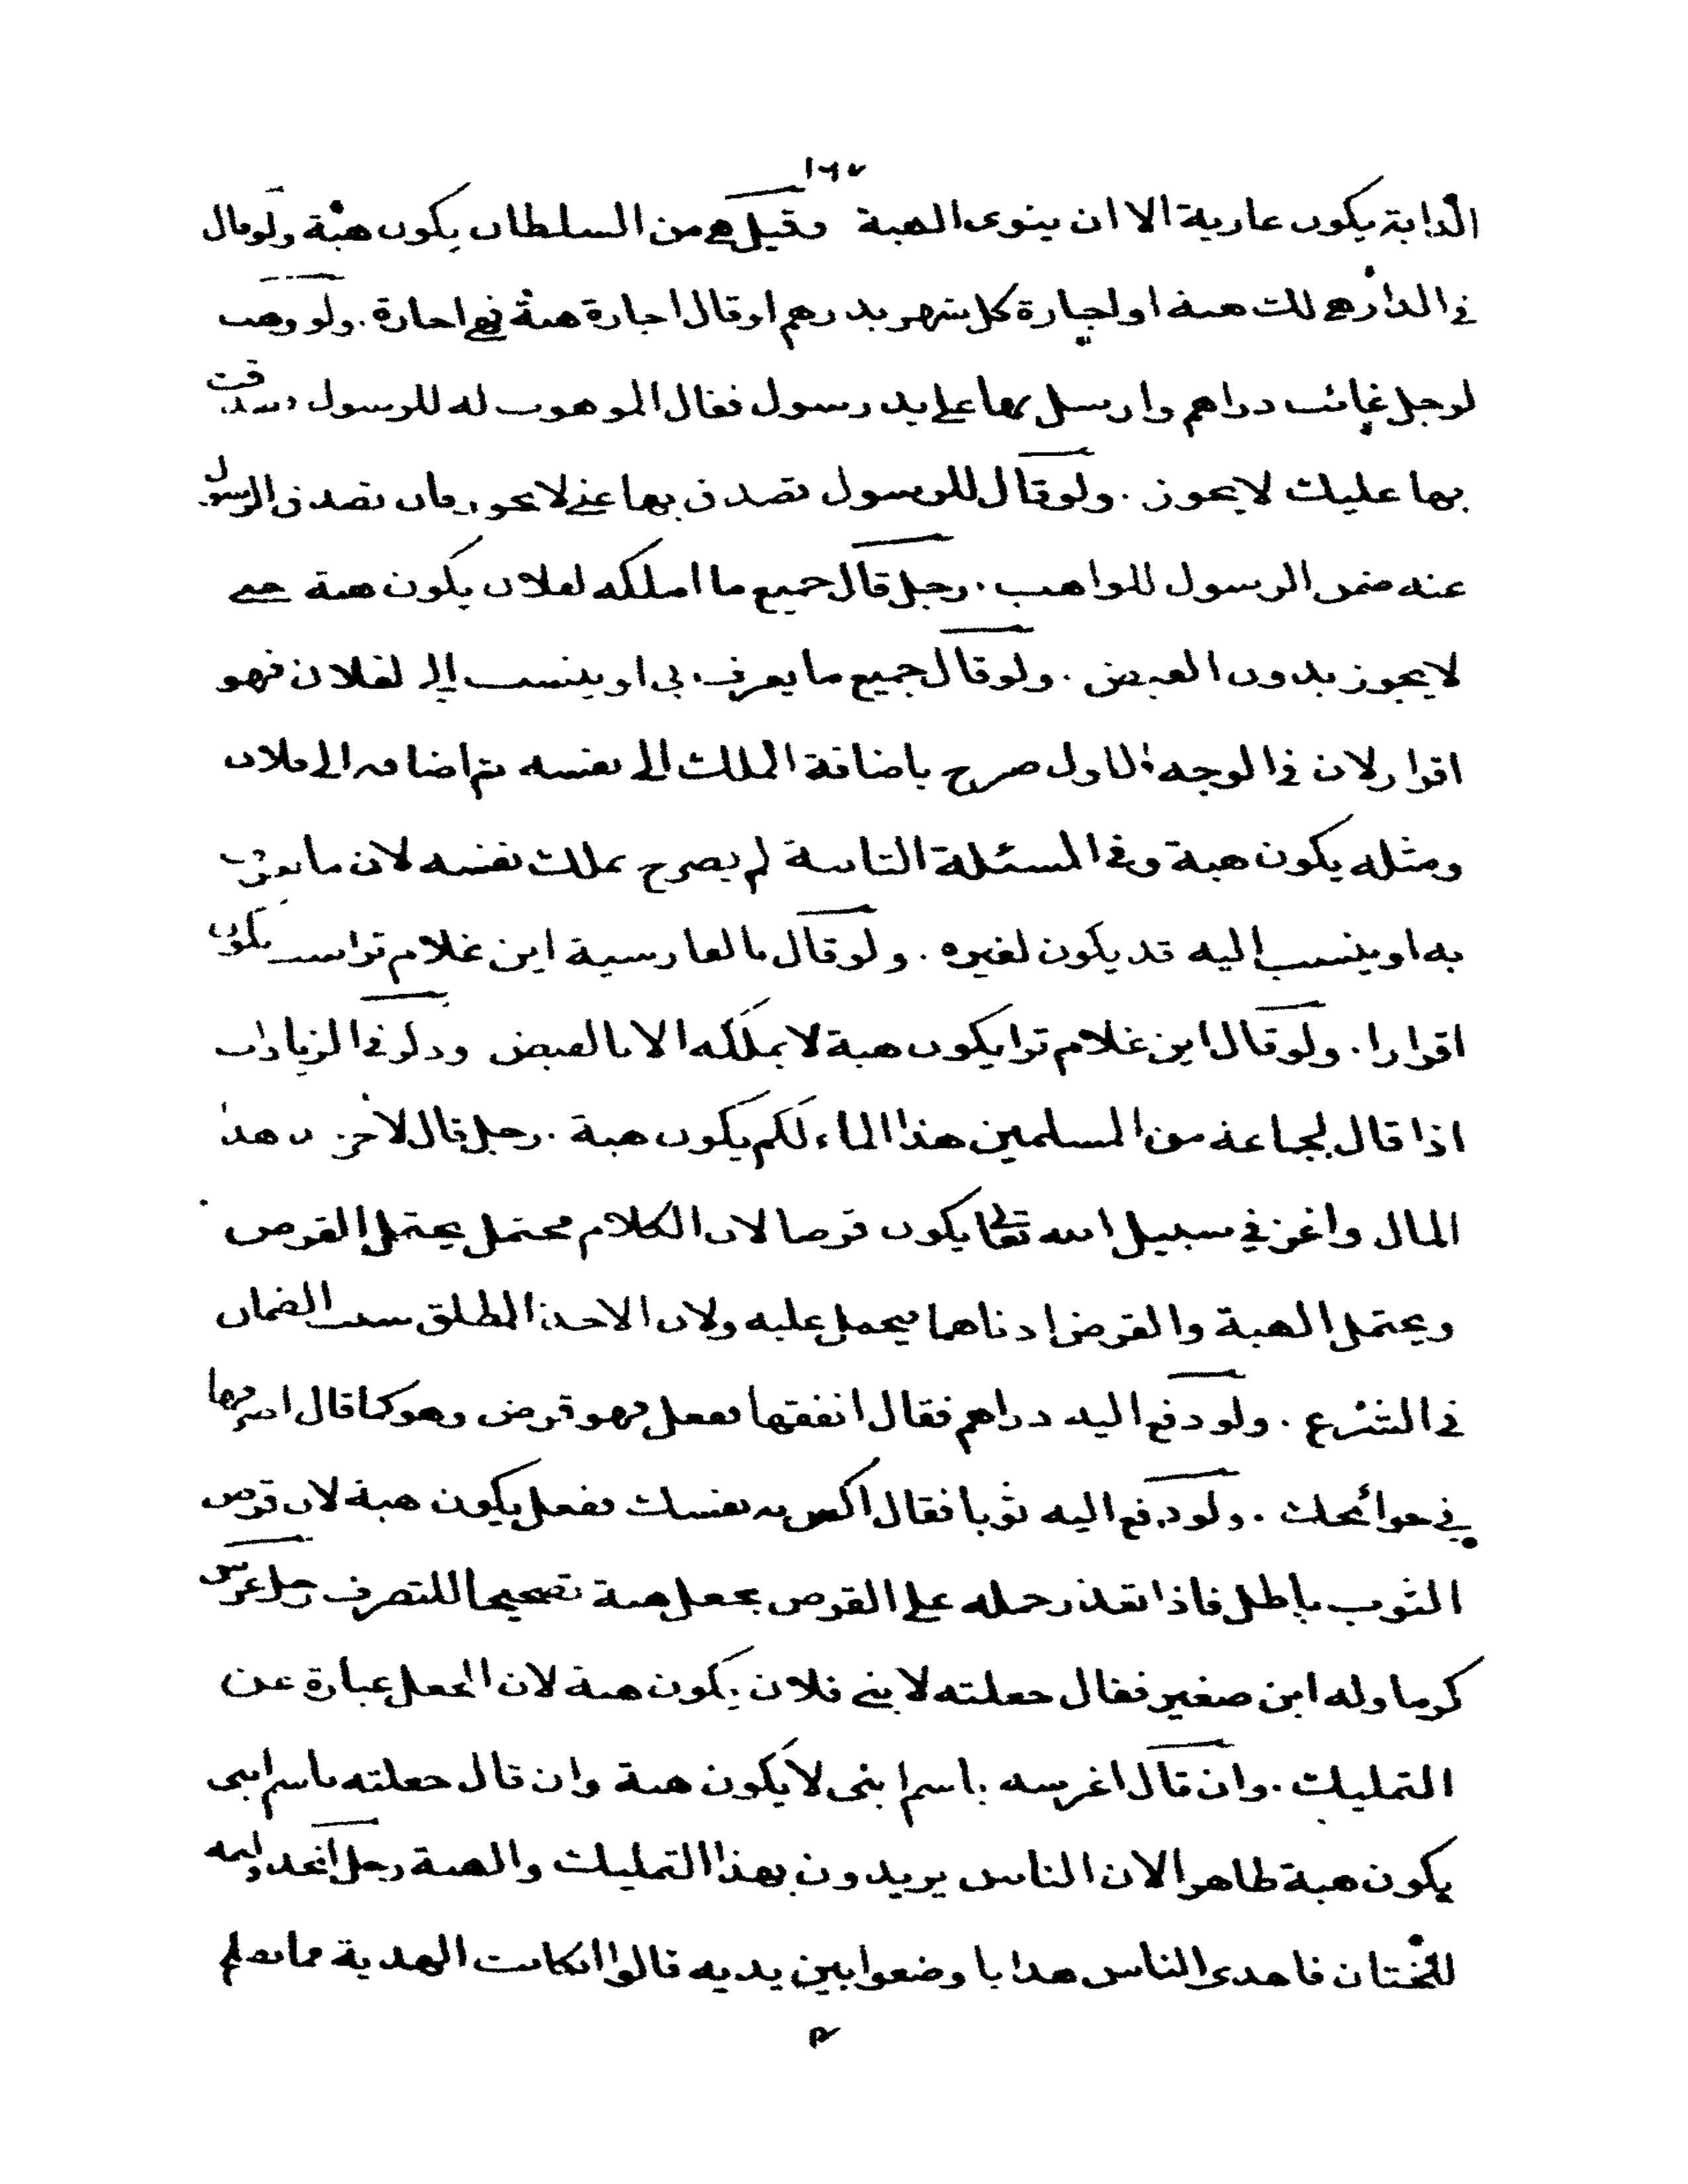 ١٦٧
الدابة يكون عارية الا ان ينوى الهبة وقيل هى من السلطان يكون هبة ولو قال
فى الدار هى لك هبة او اجارة كل شهر بدرهم او قال اجارة هبة فهى اجارة . ولو وهب
لرجل غائب دراهم وارسل بها على يد رسول فقال الموهوب له للرسول تصدقت
بها عليك لا يجوز . ولو قال للرسول تصدق بها عنى لا يجوز فان تصدق الرسول
عنه ضمن الرسول للواهب . رجل قال جميع ما املكه لفلان يكون هبة حتى
لا يجوز بدون القبض . ولو قال جميع ما يعرف بى او ينسب الى لفلان فهو
اقرار لان فى الوجه الاول صرح باضافة الملك الى نفسه ثم اضافه الى فلان
ومثله يكون هبة وفى المسئلة الثانية لم يصرح بملك نفسه لان ما يعرف
به او ينسب اليه قد يكون لغيره . ولو قال بالفارسية اين غلام تراست يكون
اقرارا . ولو قال اين غلام ترا يكون هبة لا يملكه الا بالقبض وذكر فى الزيادات
اذا قال لجماعة من المسلمين هذا الماء لكم يكون هبة . رجل قال لآخر هذا
المال واغز فى سبيل الله تعالى يكون قرضا لان الكلام محتمل يحتمل القرض
ويحتمل الهبة والقرض ادناهما فيحمل عليه ولان الاخذ المطلق سبب الضمان
فى الشرع . ولو دفع اليه دراهم فقال انفقها ففعل فهو قرض وهو كما قال اصرفها
فى حوائجك . ولو دفع اليه ثوبا فقال اكتس به نفسك ففعل يكون هبة لان قرض
الثوب باطل فاذا تعذر حمله على القرض يجعل هبة تصحيحا للتصرف رجل غرس
كرما وله ابن صغير فقال جعلته لابنى فلان يكون هبة لان الجعل عبارة عن
التمليك . وان قال اغرسه باسم ابنى لا يكون هبة وان قال جعلته باسم ابنى
يكون هبة ظاهرا لان الناس يريدون بهذا التمليك والهبة رجل اتخذ وليمة
للختان فاهدى الناس هدايا وضعوا بين يديه قالوا ان كانت الهدية مما يصلح